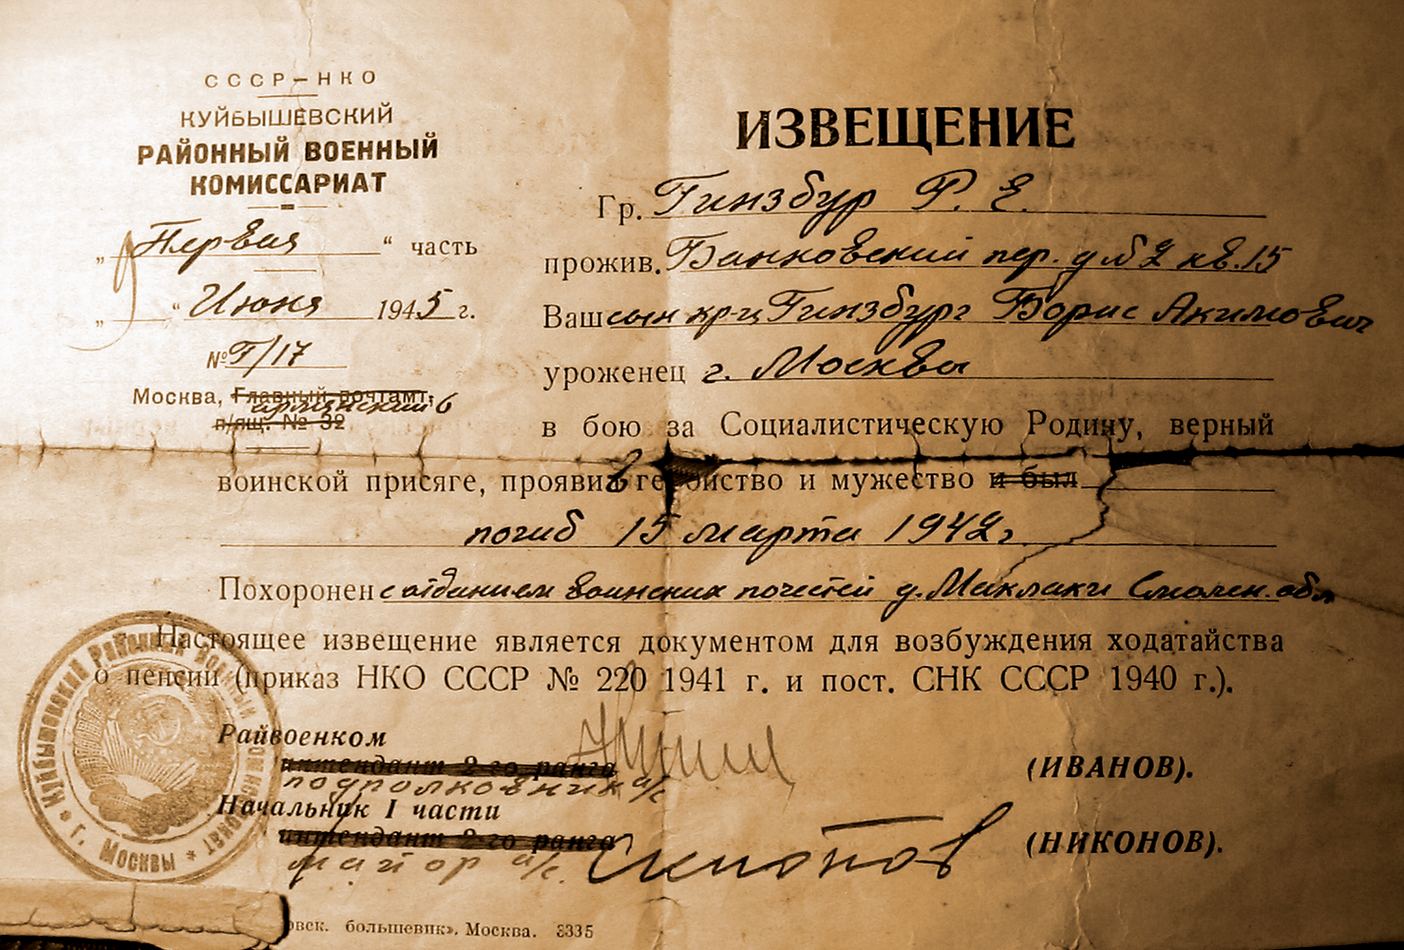 СССР—НКО
КУЙБЫШЕВСКИЙ
РАЙОННЫЙ ВОЕННЫЙ
КОМИССАРИАТ
„Первая“ часть
„9“ Июня 1945 г.
№ Г/17
Москва, Главный почтамт,
Армянский 6
п/ящ. № 32
ИЗВЕЩЕНИЕ
Гр. Гинзбур Р. Е.
прожив. Банковский пер. д № 2 кв. 15
Ваш сын кр-ц Гинзбург Борис Акимович
уроженец г. Москвы
в бою за Социалистическую Родину, верный
воинской присяге, проявив геройство и мужество и был
погиб 15 марта 1942 г.
Похоронен с отданием воинских почестей д. Маклаки Смолен. обл
Настоящее извещение является документом для возбуждения ходатайства
о пенсии (приказ НКО СССР № 220 1941 г. и пост. СНК СССР 1940 г.).
Райвоенком
интендант 2-го ранга (ИВАНОВ).
подполковник а/с
Начальник I части
интендант 2-го ранга (НИКОНОВ).
майор а/с.
Куйбышевский Районный Военный Комиссариат * г. Москвы *
овск. большевик». Москва. 3335